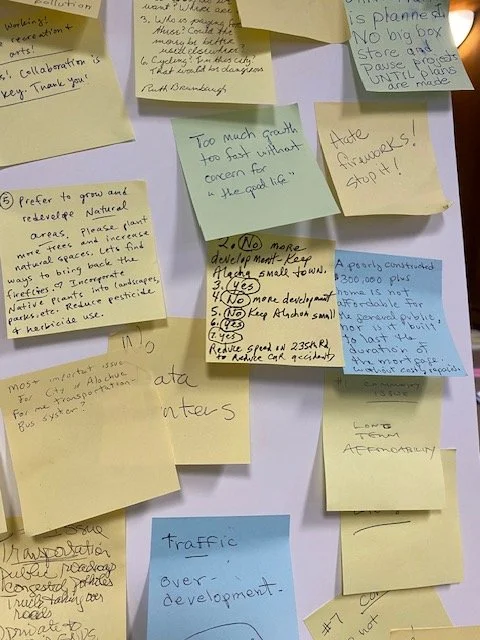 Working!
recreation +
arts!
Collaboration is
key. Thank you!
pollution
want? Where are
3. Who is paying for
these? Could the
money be better
used elsewhere?
6. Cycling? In this city?
That would be dangerous
Ruth Brumbaugh
is planned.
NO big box
store and
pause projects
UNTIL plans
are made
Too much growth
too fast without
concern for
"the good life"
Hate
fireworks!
Stop it!
⑤ Prefer to grow and
redevelope Natural
areas. Please plant
more trees and increase
natural spaces. Lets find
ways to bring back the
fireflies. Incorporate
Native Plants into landscapes,
parks, etc. Reduce pesticide
& herbicide use.
2. No more
development keep
Alachua small town.
3. Yes
4. No more development
5. No Keep Alachua small
6. Yes
7. Yes
Reduce speed on 235th Rd.
to Reduce car accident
A poorly constructed
$300,000 plus
home is not
affordable for
the general public,
nor is it "built"
to last the
duration of
the mortgage
without costly repairs.
Most important issue
for City of Alachua
For me transportation-
Bus system?
No
Data
Centers
# Community
issue
LONG
TERM
AFFORDABILITY
issue
Transportation
public roadway
congested
Trucks taking over
roads
private to
Traffic
over-
development.
#7
not